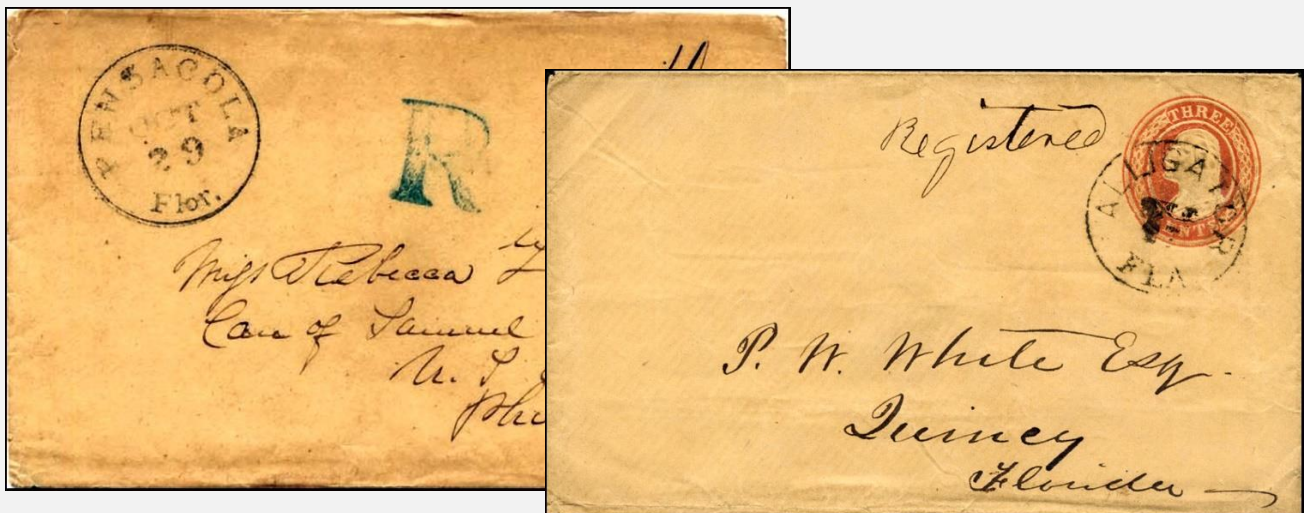 PENSACOLA
OCT
29
Flor.
R
Miss Rebecca
Care of Samuel
U. S.
Registered
THREE
CENTS
ALLIGATOR
FLA
P. W. White Esq.
Quincy
Florida